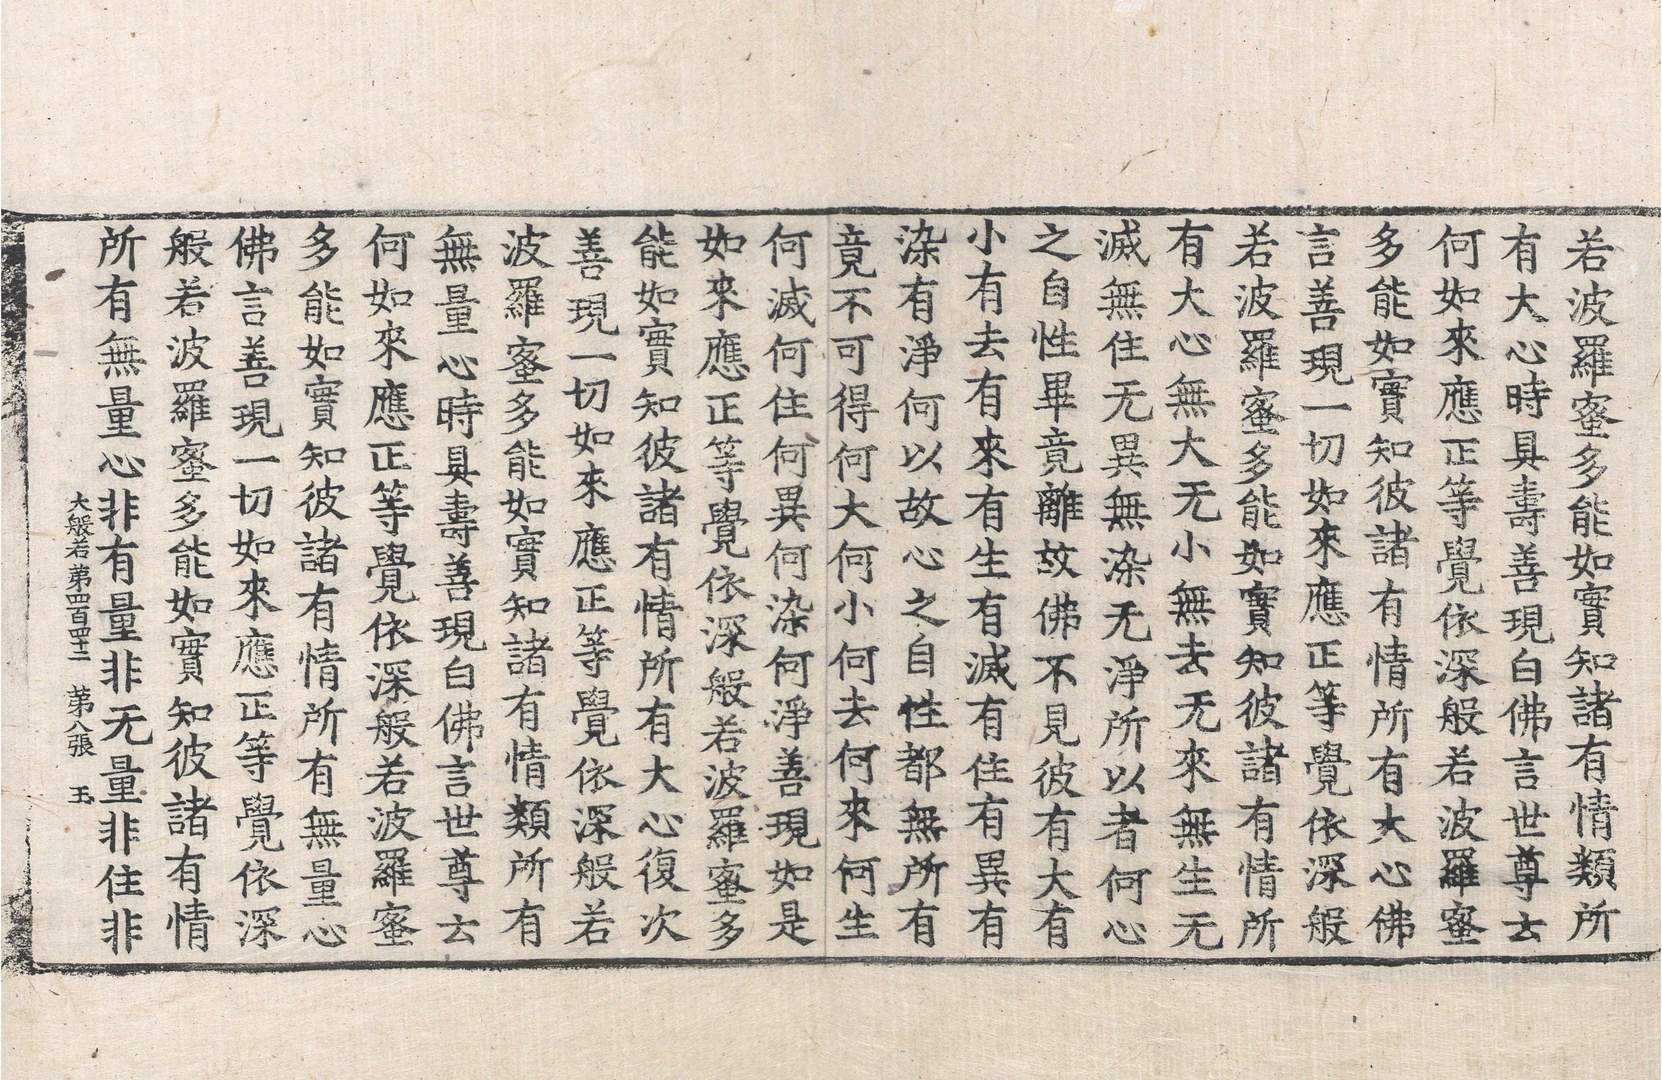 若波羅蜜多能如實知諸有情類所
有大心時具壽善現白佛言世尊云
何如來應正等覺依深般若波羅蜜
多能如實知彼諸有情所有大心佛
言善現一切如來應正等覺依深般
若波羅蜜多能如實知彼諸有情所
有大心無大无小無去无來無生无
滅無住无異無染无淨所以者何心
之自性畢竟離故佛不見彼有大有
小有去有來有生有滅有住有異有
染有淨何以故心之自性都無所有
竟不可得何大何小何去何來何生
何滅何住何異何染何淨善現如是
如來應正等覺依深般若波羅蜜多
能如實知彼諸有情所有大心復次
善現一切如來應正等覺依深般若
波羅蜜多能如實知諸有情類所有
無量心時具壽善現白佛言世尊云
何如來應正等覺依深般若波羅蜜
多能如實知彼諸有情所有無量心
佛言善現一切如來應正等覺依深
般若波羅蜜多能如實知彼諸有情
所有無量心非有量非无量非住非
大般若第四百四十二 第八張 玉